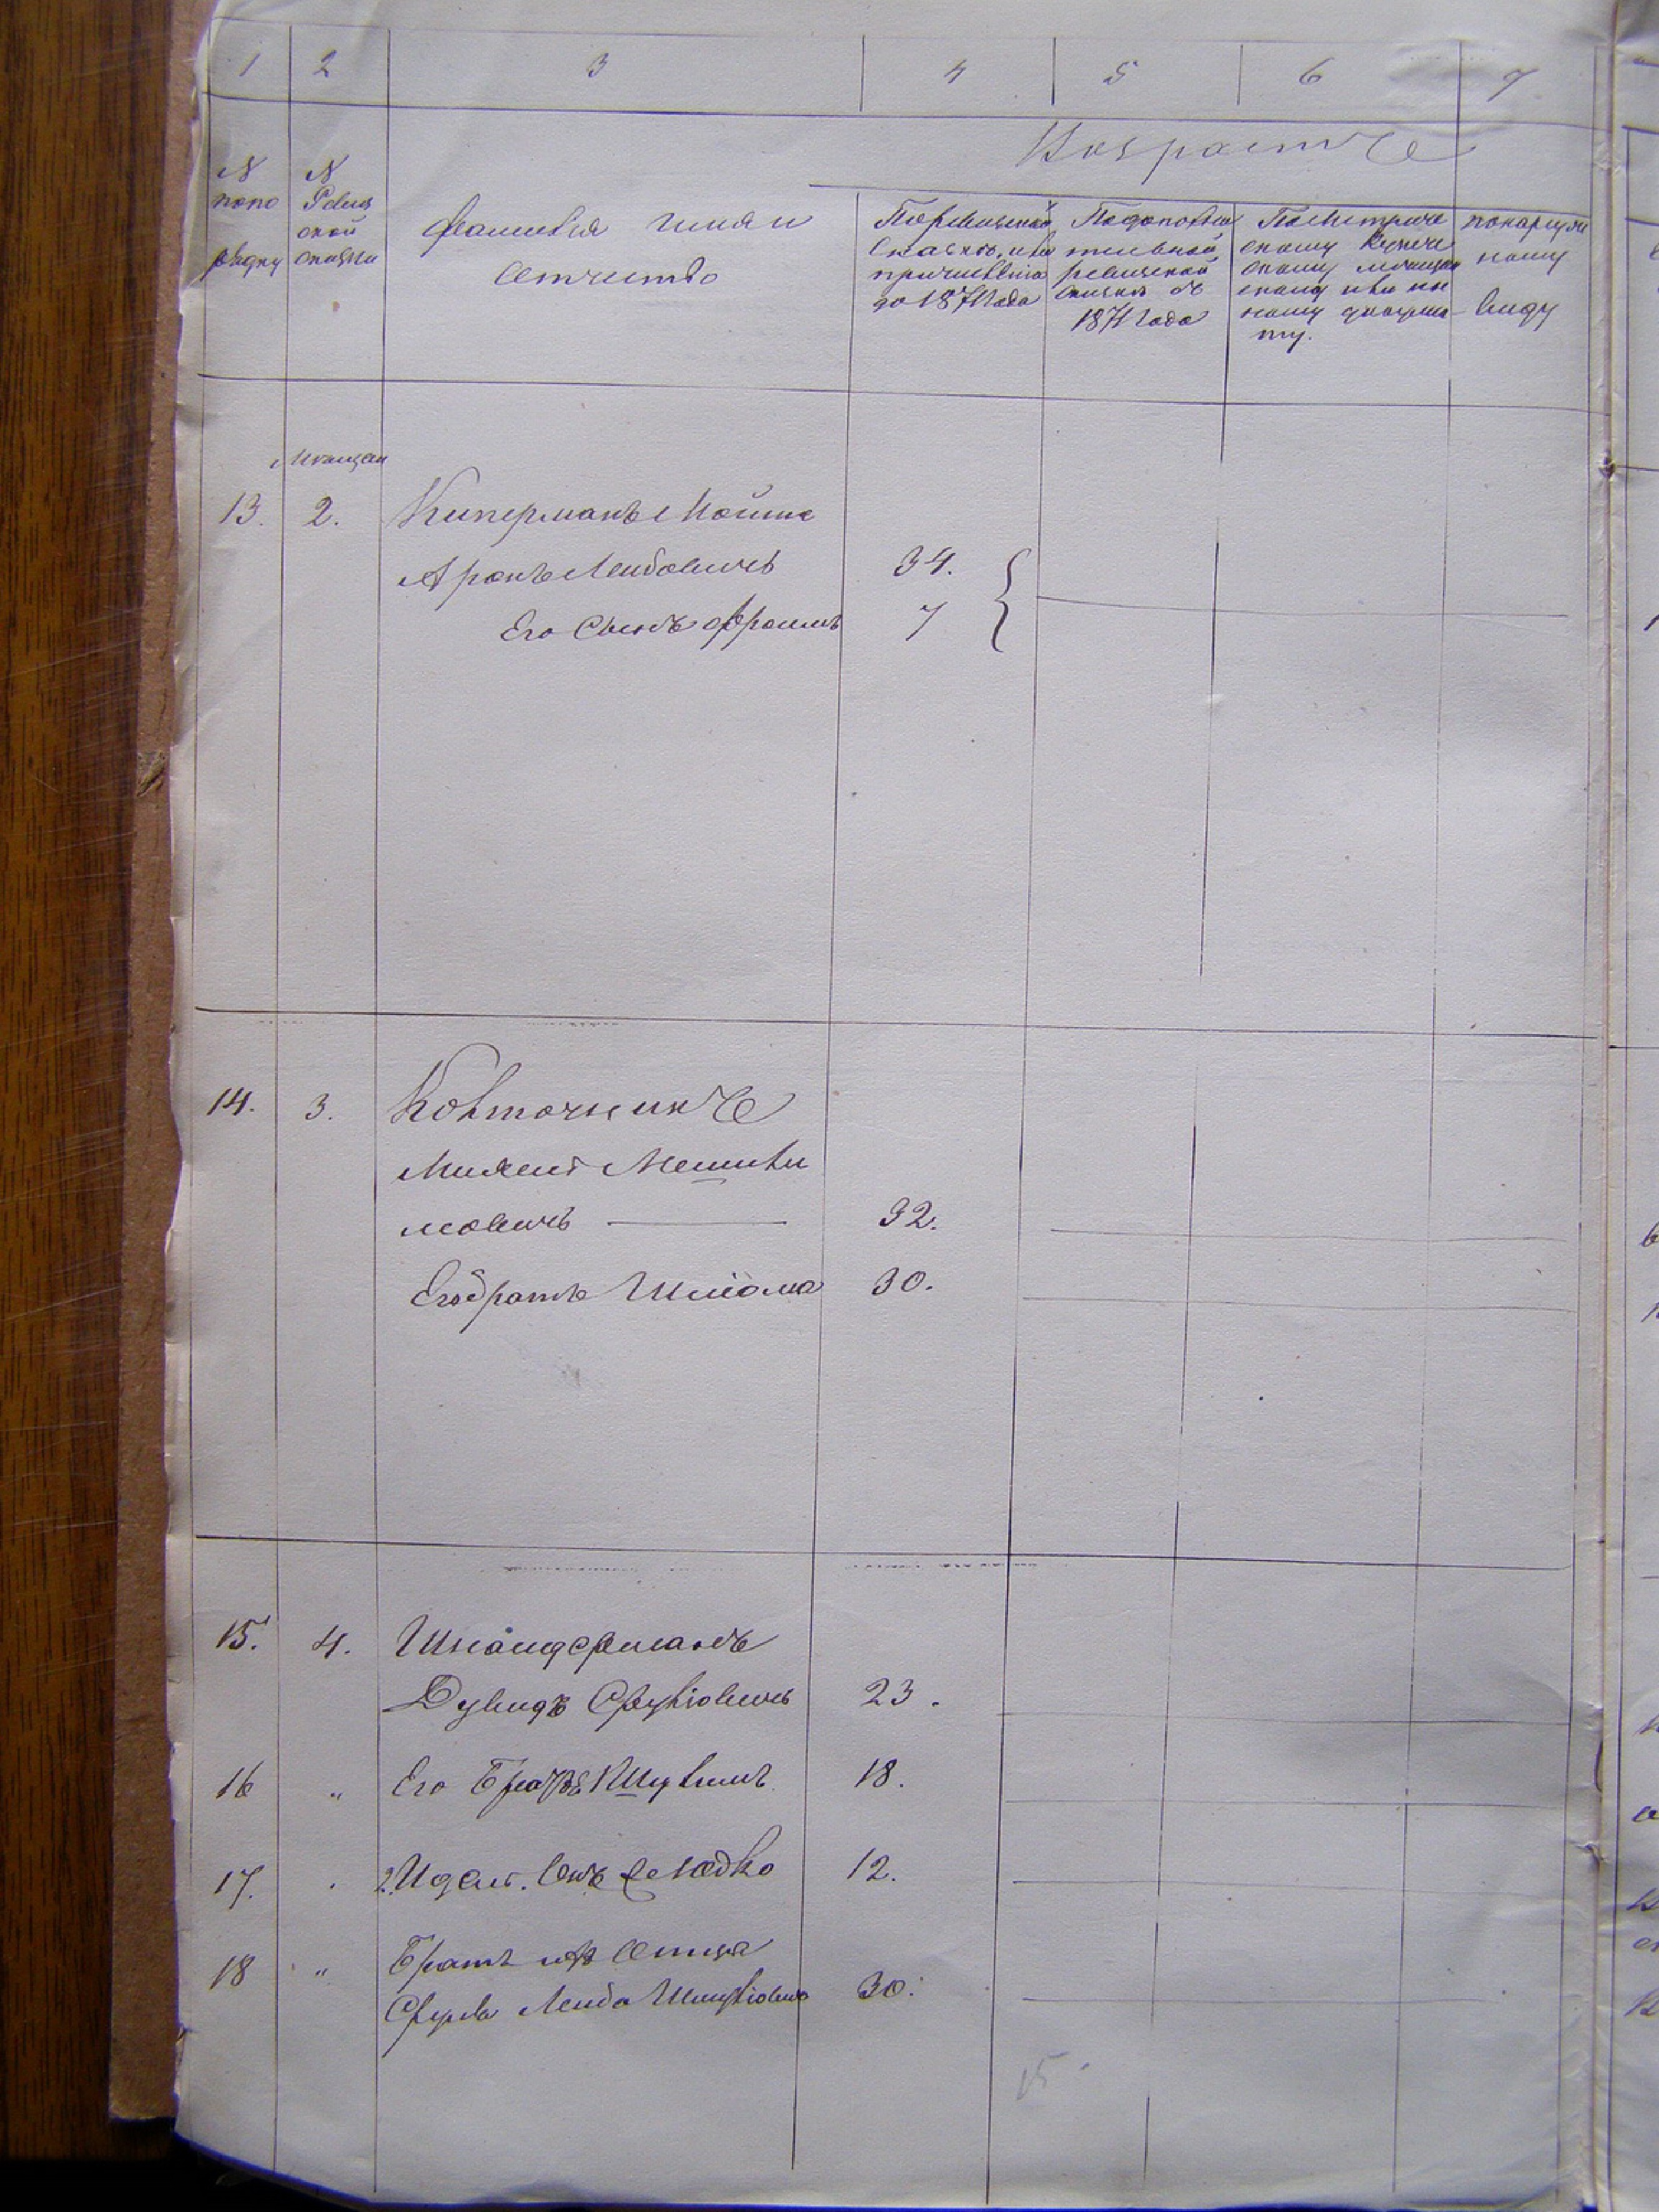 1 2 3 4 5 6 7
Возрастъ
N по по рядку
N Ревиз ской сказки
Фамилія Имя и Отчество
По ревизской сказкѣ, или причисленію до 1874 года
По дополни тельной ревизской сказкѣ съ 1874 года
По Метриче скому Купече скому мѣщан скому или ин ному докумен ту.
по наружно ному виду
Мѣщан
13. 2. Киперманъ Мошко
Аронъ Лейбовичъ 34.
Его Сынъ Фроимъ 7
14. 3. Колточникъ
Михель Мешили
мовичъ 32.
Его братъ Шлiома 30.
15. 4. Шнайдерманъ
Дувидъ Сруліовичъ 23.
16 „ Его Братъ Шулимъ 18.
17. 12.
18 „ Братъ ихъ Отца
Сруль Лейба Шмуліовичъ 30.
15.